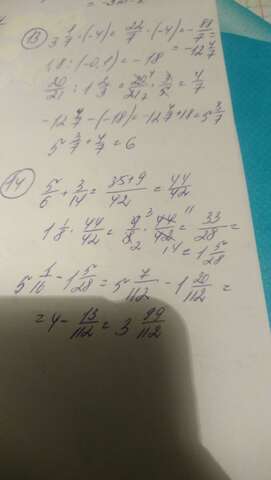 13) 3 1/7 · (-4) = 22/7 · (-4) = -88/7 =
= -12 4/7
1,8 : (-0,1) = -18
20/21 : 1 2/3 = 20/21 · 3/5 = 4/7
-12 4/7 - (-18) = -12 4/7 + 18 = 5 3/7
5 3/7 + 4/7 = 6
14) 5/6 + 3/14 = 35+9/42 = 44/42
1 1/8 · 44/42 = 9/8 · 44/42 = 33/28 =
= 1 5/28
5 1/16 - 1 5/28 = 5 7/112 - 1 20/112 =
= 4 - 13/112 = 3 99/112